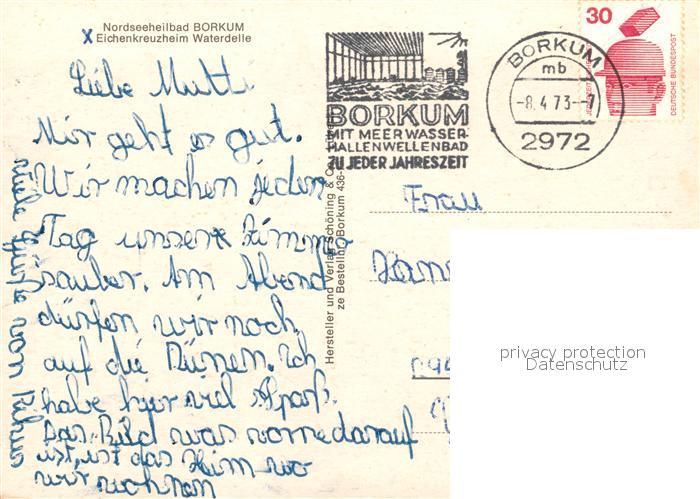 Nordseeheilbad BORKUM
X Eichenkreuzheim Waterdelle
Liebe Mutti
Mir geht es gut.
Wir machen jeden
Tag unsere Zimmer
sauber. Am Abend
dürfen wir noch
auf die Dünen. Ich
habe hier viel Spaß.
Das Bild was vorne darauf
ist, ist das Heim wo
wir wohnen
viele Grüße von
BORKUM
MIT MEERWASSER-
HALLENWELLENBAD
ZU JEDER JAHRESZEIT
BORKUM
mb
-8.4.73--7
2972
30
DEUTSCHE BUNDESPOST
Hersteller und Verlag Schöning & Co
Bestell-Nr. Borkum 436
Frau
privacy protection
Datenschutz